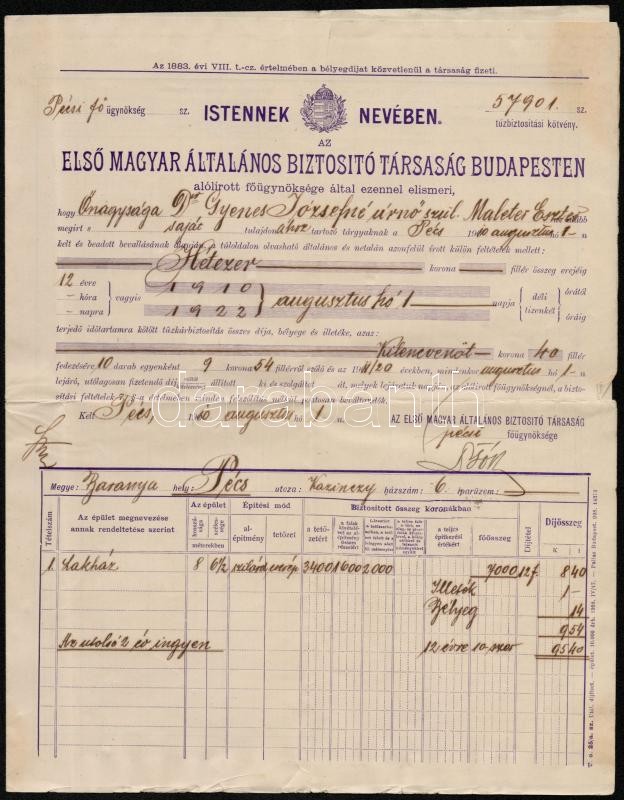 Az 1883. évi VIII. t.-cz. értelmében a bélyegdíjat közvetlenül a társaság fizeti.
Pécsi fő ügynökség sz. ISTENNEK NEVÉBEN. 57901. sz.
tűzbiztosítási kötvény.
AZ
ELSŐ MAGYAR ÁLTALÁNOS BIZTOSITÓ TÁRSASÁG BUDAPESTEN
alólirott főügynöksége által ezennel elismeri,
hogy Őnagysága Dr Gyenes Józsefné úrnő szül. Maleter Eszter
megirt s saját tulajdonához tartozó tárgyaknak a Pécs 1910 augusztus hó 1-n
kelt és beadott bevallásának alapján, a túloldalon olvasható általános és netalán azonfelül érött külön feltételek mellett:
Hétezer korona fillér összeg erejéig
12 évre 1910 órától
– hóra vagyis augusztus hó 1 napja déli
– napra 1922 tizenkét óráig
terjedő időtartamra kötött tűzkárbiztosítás összes díja, bélyege és illetéke, azaz:
Kilencvenöt korona 40 fillér
fedezésére 10 darab egyenként 9 korona 54 fillérről szóló és az 1911/20 években, mindenkor augusztus hó 1-n
lejáró, utólagosan fizetendő díj állított ki és szolgáltatott át, melyek lejáratuk napján az alólirott főügynökségnél, a bizto-
sítási feltételek §-a értelmében minden felszólítás nélkül pontosan beváltandók.
Kelt Pécs, 1910 augusztus hó 1 n. AZ ELSŐ MAGYAR ÁLTALÁNOS BIZTOSITÓ TÁRSASÁG
pécsi főügynöksége
darabanth
Megye: Baranya hely: Pécs utcza: Kazinczy házszám: 6. iparüzem:
Tételszám
Az épület megnevezése annak rendeltetése szerint
Az épület hosszúsága szélessége méterekben
Építési mód alépítmény tetőzet
Biztosított összeg koronákban
a tetőzetért
a teljes építkezési értékért
főösszeg
Díjtétel
Díjösszeg
K f
1. Lakház 8 6½ szilárd cserép 3400 1600 2000 7000 12f. 8 40
Illeték 1 –
Bélyeg 14
9 54
Az utolsó 2 év ingyen 12 évre 10-szer 95 40